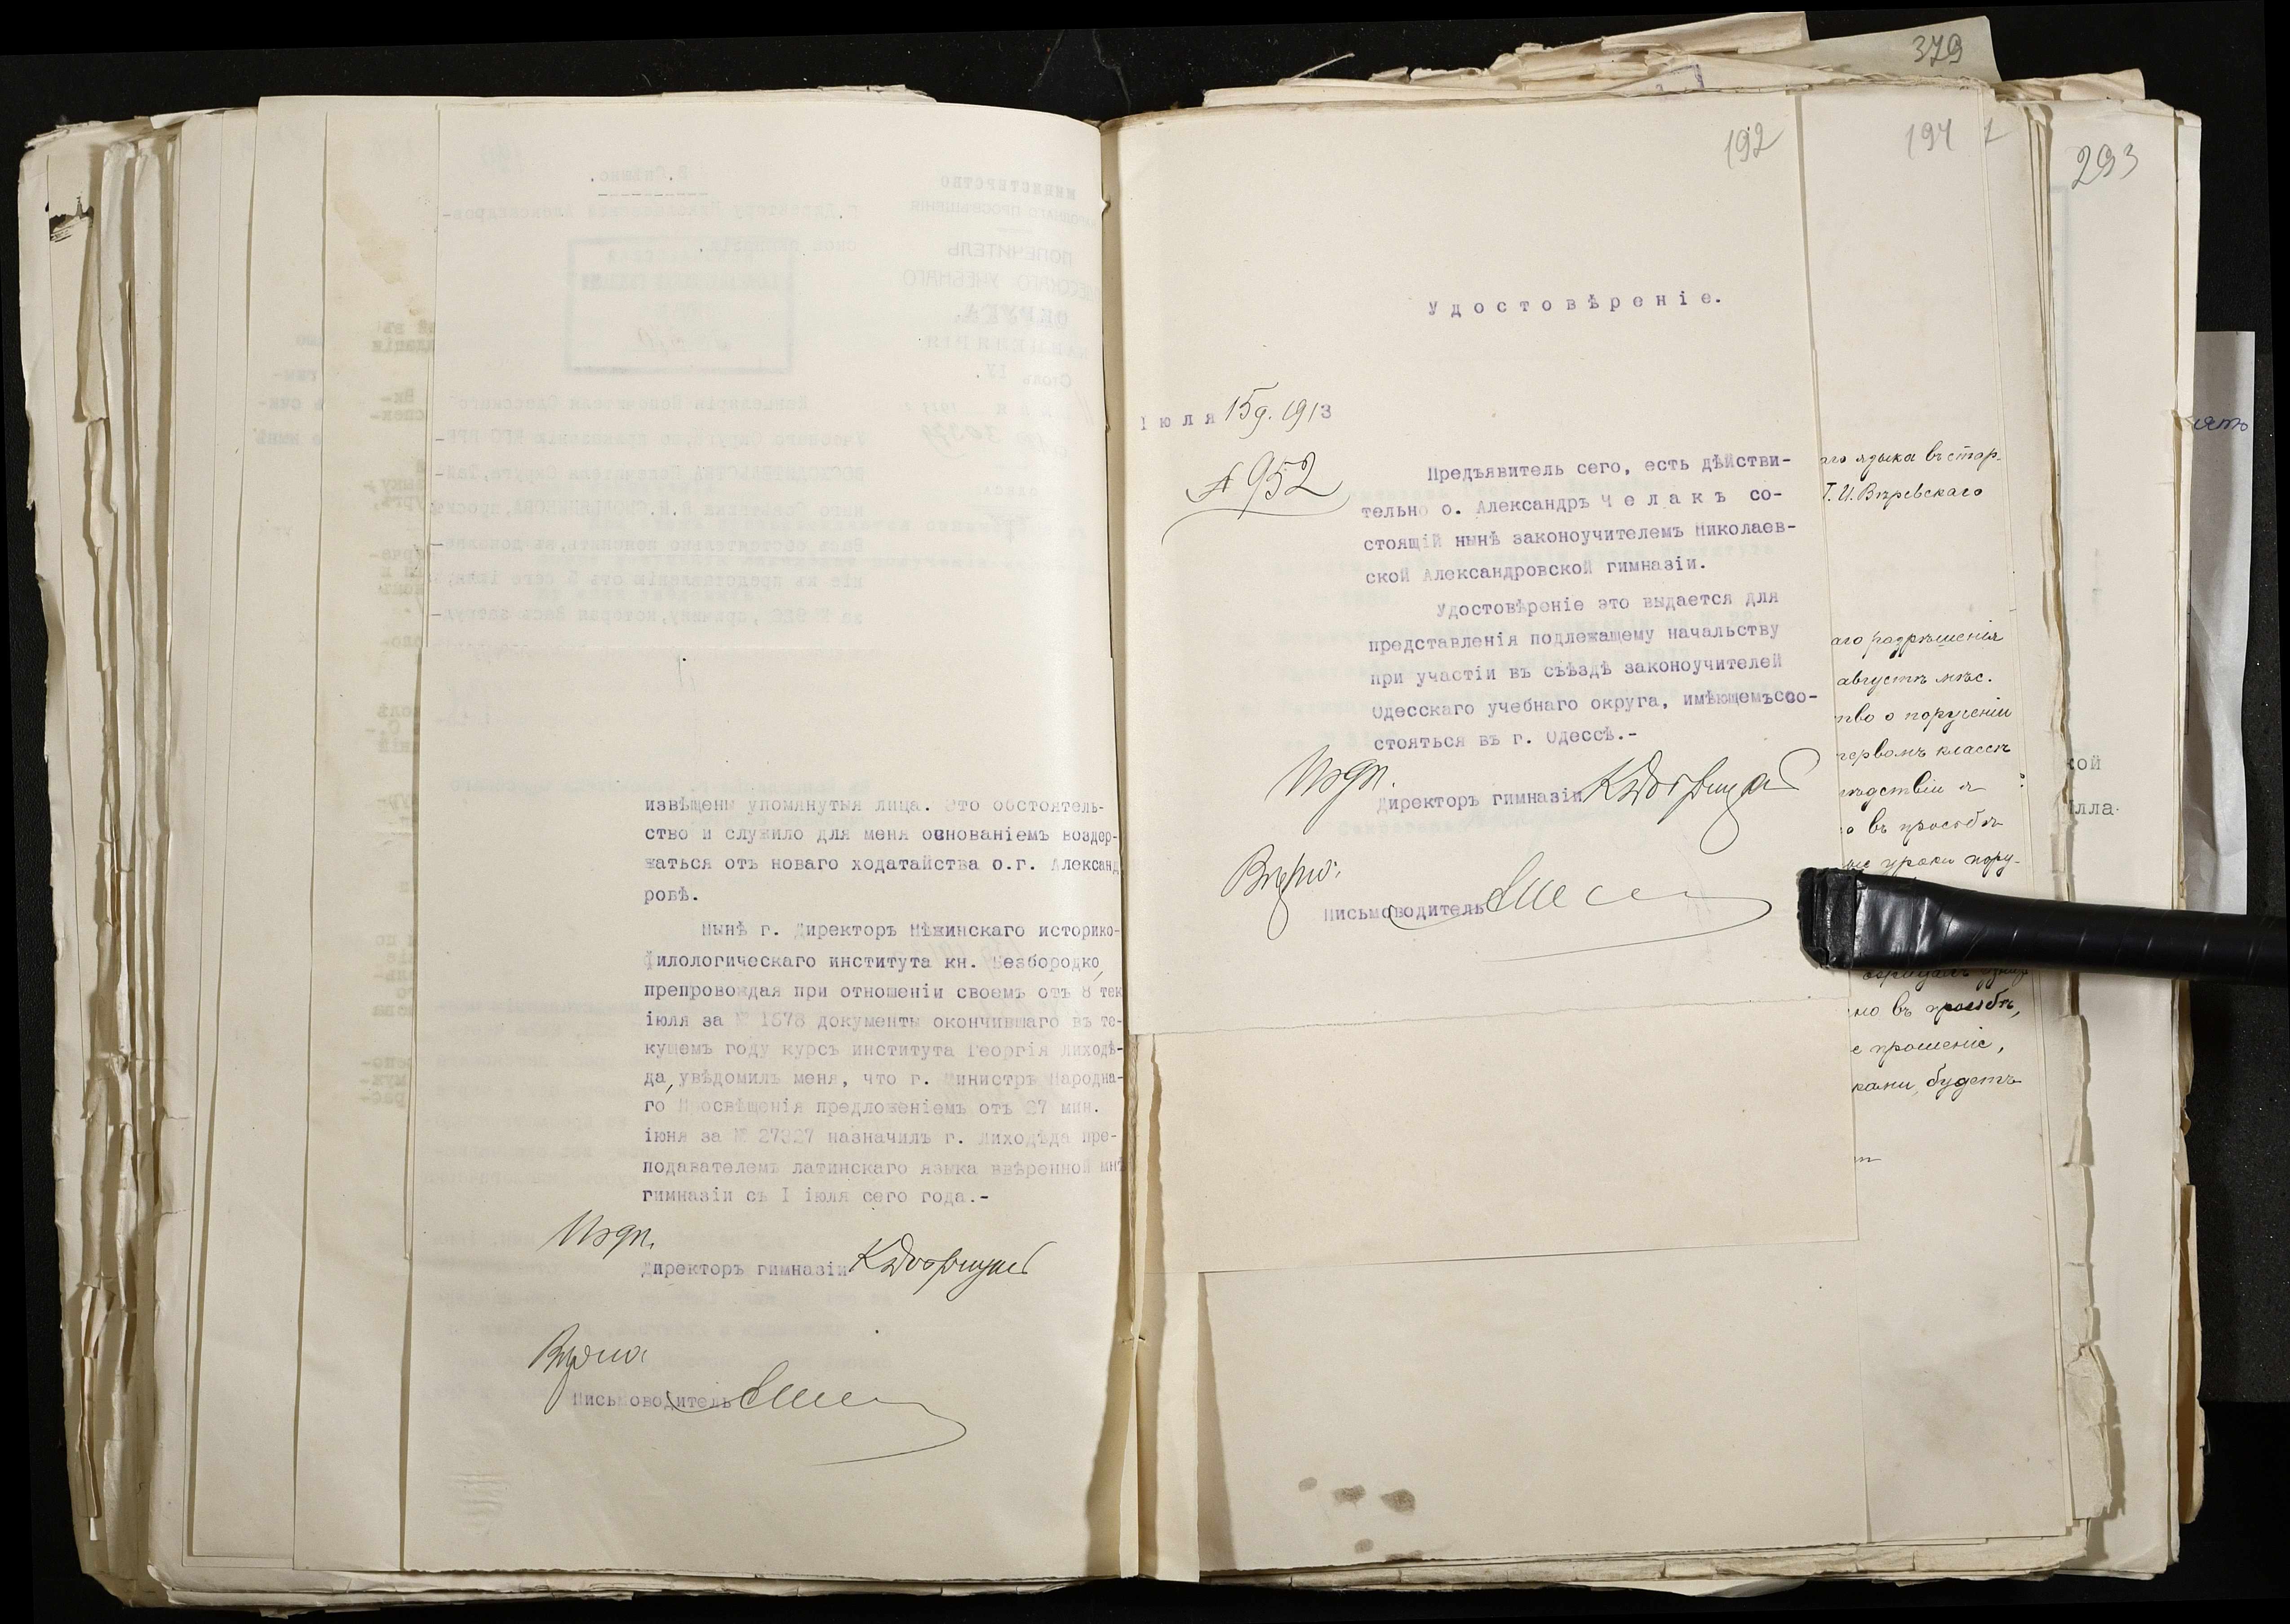 извѣщены упомянутыя лица. Это обстоятель-
ство и служило для меня основаніемъ воздер-
жаться отъ новаго ходатайства о.г. Александ
ровѣ.
Нынѣ г. Директоръ Нѣжинскаго историко-
филологическаго института кн. Безбородко,
препровождая при отношеніи своемъ отъ 8 тек
іюля за № 1678 документы окончившаго въ те-
кущемъ году курсъ института Георгія Лиходѣ-
да, увѣдомилъ меня, что г. Министръ Народна-
го Просвѣщенія предложеніемъ отъ 27 мин.
іюня за № 27327 назначилъ г. Лиходѣда пре-
подавателемъ латинскаго языка ввѣренной мнѣ
гимназіи съ I іюля сего года.-
Подп.
Директоръ гимназіи
Вѣрно
Письмоводитель
379
192
194
293
Удостовѣреніе.
Іюля 15 д. 1913
№ 952
Предъявитель сего, есть дѣйстви-
тельно о. Александръ Челакъ со-
стоящій нынѣ законоучителемъ Николаев-
ской Александровской гимназіи.
Удостовѣреніе это выдается для
представленія подлежащему начальству
при участіи въ съѣздѣ законоучителей
Одесскаго учебнаго округа, имѣющемъ со-
стояться въ г. Одессѣ.-
Подп.
Директоръ гимназіи
Вѣрно:
Письмоводитель
аго языка въ стар-
Т. И. Вѣревскаго
аго разрѣшенія
августѣ мѣс.
тво о порученіи
первомъ классѣ
о въ просьбѣ
уроки пору-
но въ просьбѣ,
е прошеніе,
ками, будетъ
кой
лла-